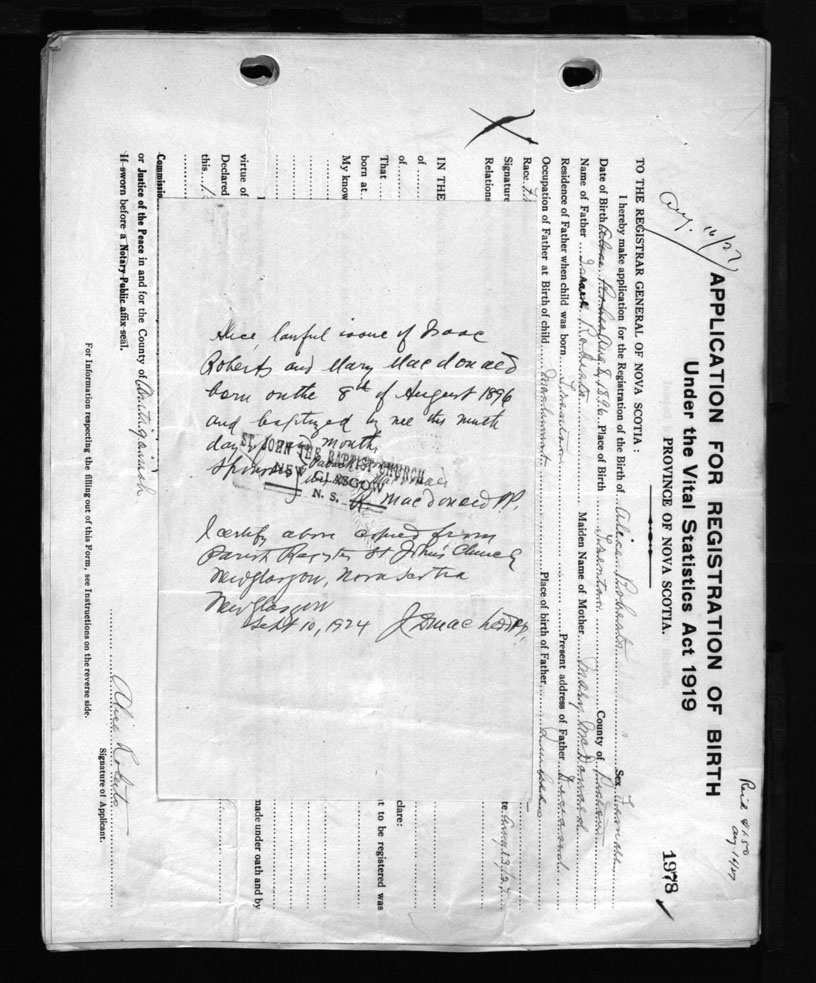 Aug. 16/27
Paid $1.50
Aug 14/27
1978
APPLICATION FOR REGISTRATION OF BIRTH
Under the Vital Statistics Act 1919
PROVINCE OF NOVA SCOTIA.
TO THE REGISTRAR GENERAL OF NOVA SCOTIA:
I hereby make application for the Registration of the Birth of Alice Roberts Sex Female
Date of Birth Aug. 8, 1896 Place of Birth County of Pictou
Name of Father Roberts Maiden Name of Mother Mary McDonald
Residence of Father when child was born Present address of Father Deceased
Occupation of Father at Birth of child Place of birth of Father
Race
Signature te Aug 13/27
Relations
IN THE
of
of clare:
That t to be registered was
born at
My know
virtue of made under oath and by
Declared
this
Commissio
or Justice of the Peace in and for the County of Antigonish
If sworn before a Notary Public affix seal.
Alice Roberts
Signature of Applicant.
For Information respecting the filling out of this Form, see Instructions on the reverse side.
Alice, lawful issue of Isaac
Roberts and Mary Macdonald
born on the 8th of August 1896
and baptized by me this ninth
day of month
Sponsors
Macdonald PP.
ST. JOHN THE BAPTIST CHURCH
NEW GLASGOW
N. S.
I certify above copied from
Parish Register St John's Church
New Glasgow, Nova Scotia
New Glasgow
Sept 10, 1924